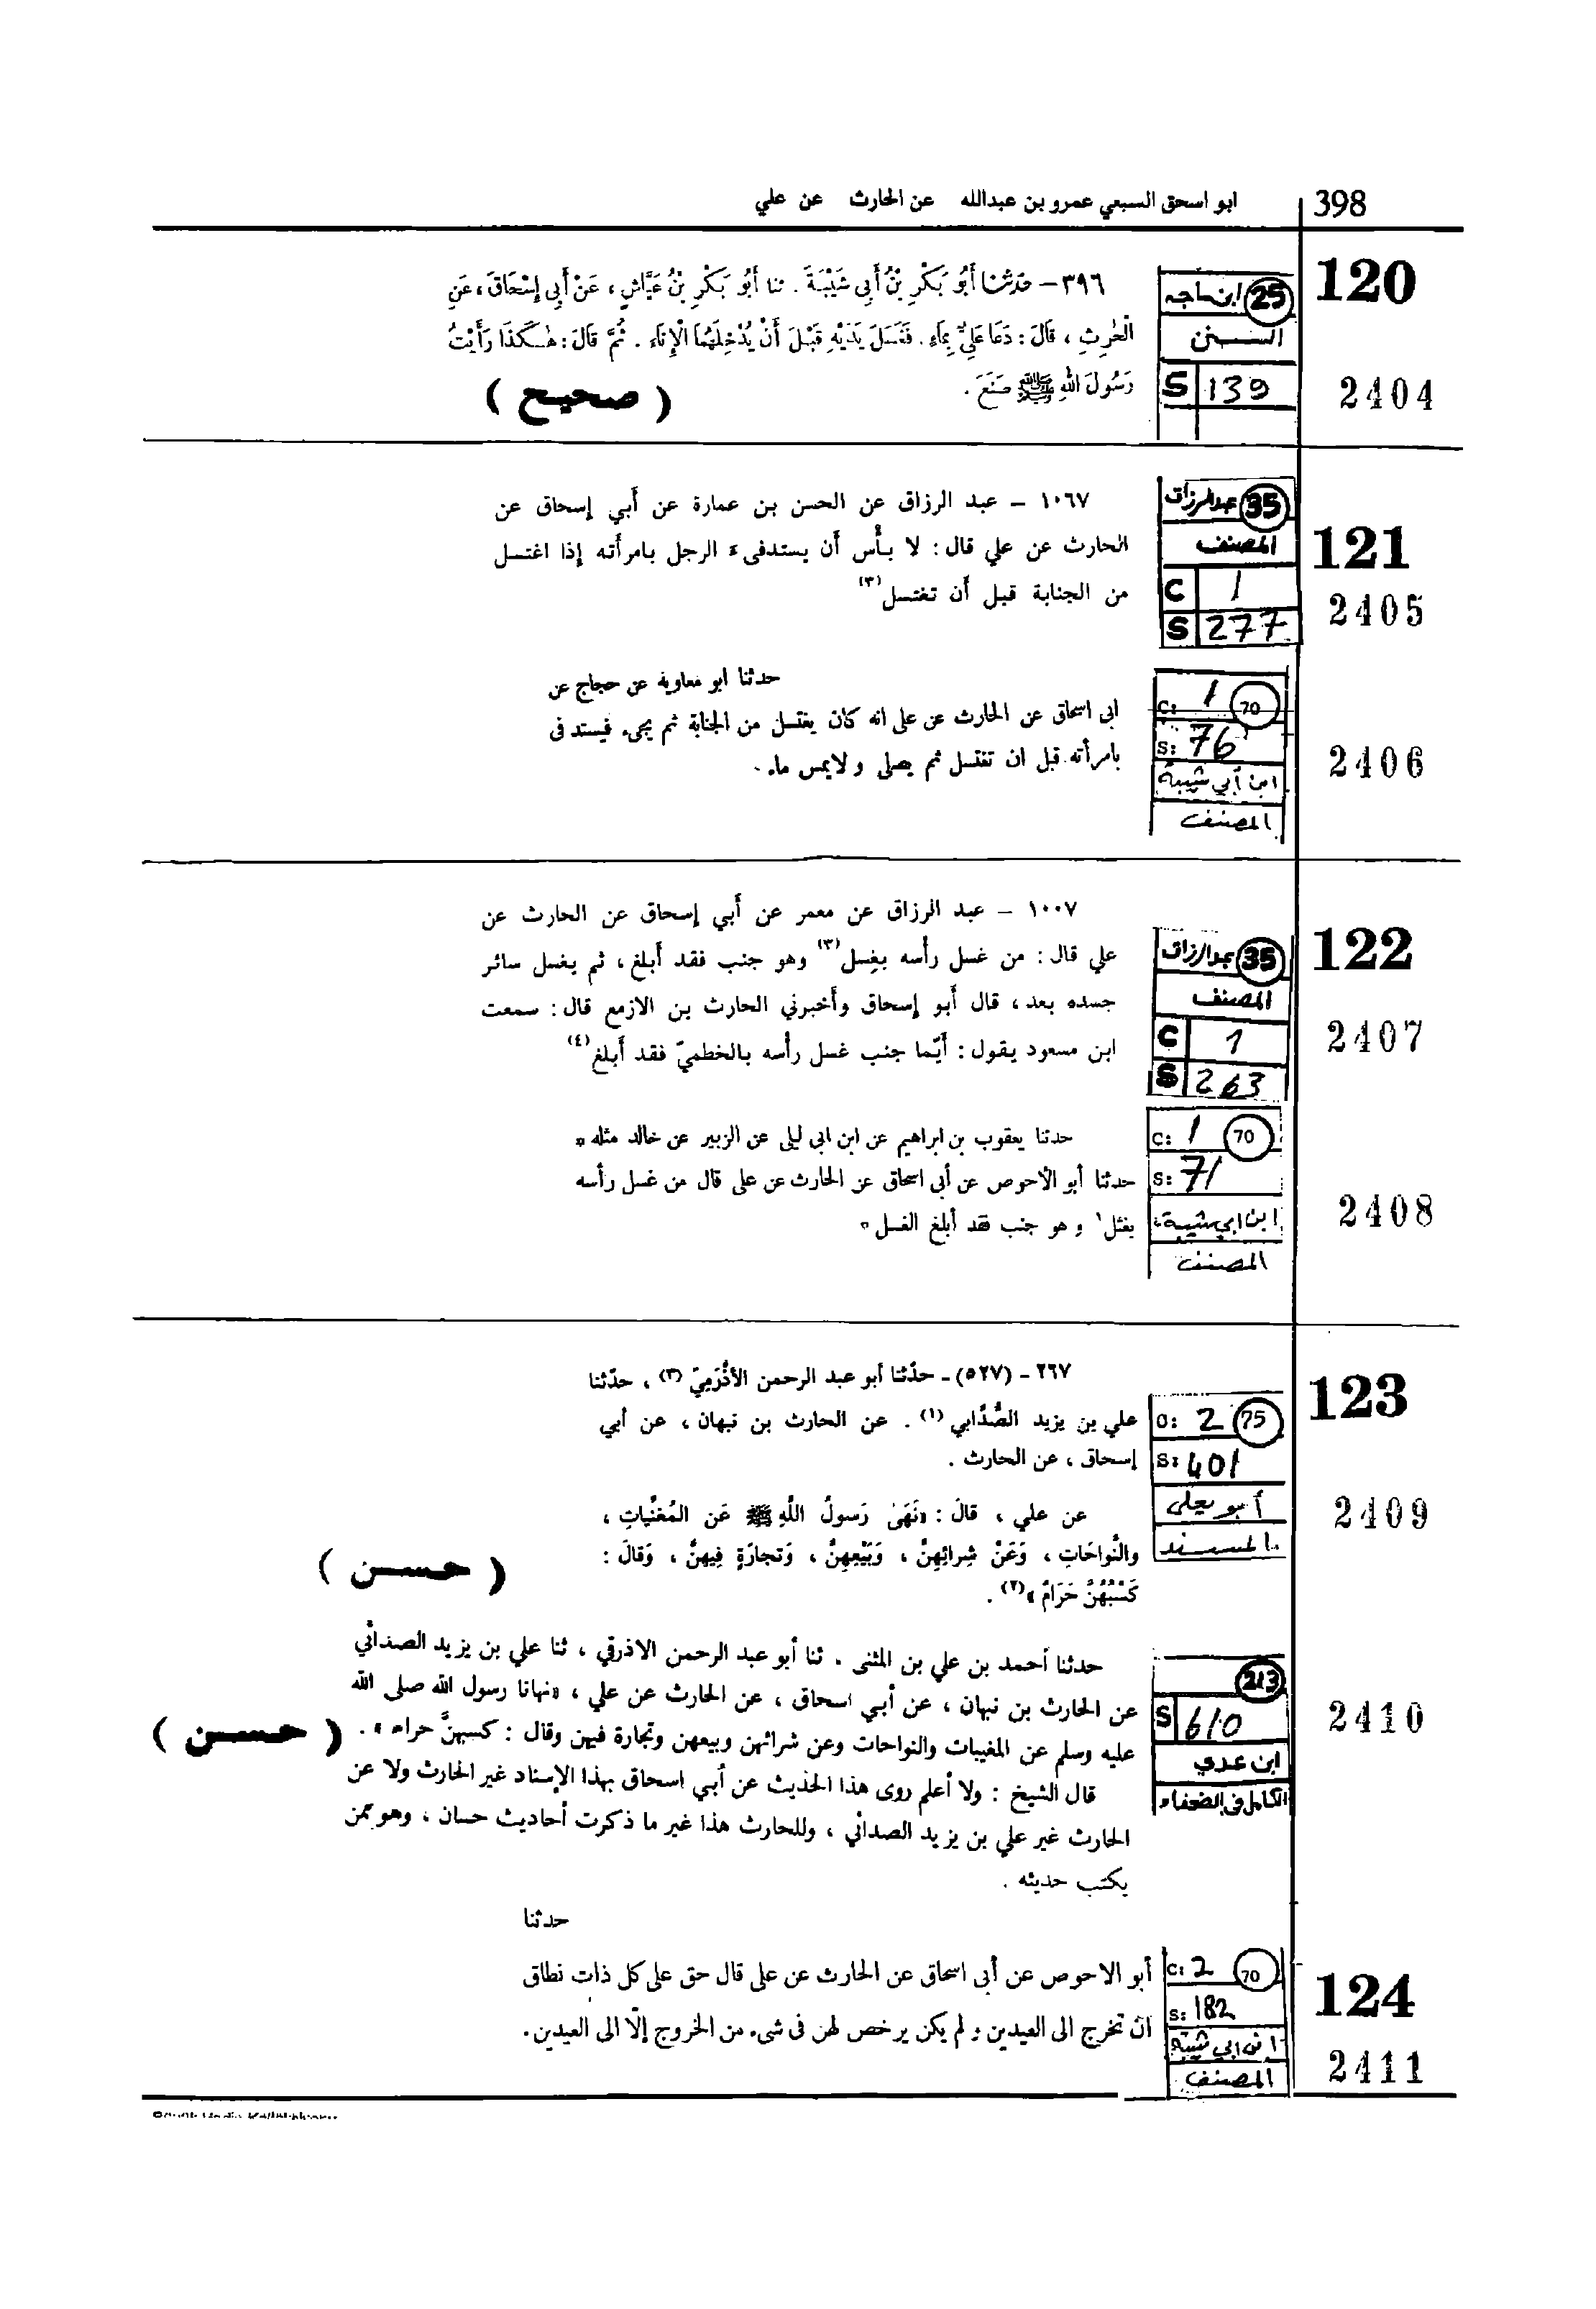 398
ابو اسحق السبعي عمرو بن عبدالله عن الحارث عن علي
120
25 ابن ماجه
السنن
S 139
2404
٣٩٦ – حَدَّثَنَا أَبُو بَكْرِ بْنُ أَبِي شَيْبَةَ . ثنا أَبُو بَكْرِ بْنُ عَيَّاشٍ ، عَنْ أَبِي إِسْحَاقَ ، عَنِ
الْحَٰرِثِ ، قَالَ : دَعَا عَلِيٌّ بِمَاءٍ . فَغَسَلَ يَدَيْهِ قَبْلَ أَنْ يُدْخِلَهُمَا الْإِنَاءَ . ثُمَّ قَالَ : هٰكَذَا رَأَيْتُ
رَسُولَ اللهِ ﷺ صَنَعَ .
( صحيح )
121
35 عبدالرزاق
المصنف
C 1
S 277
2405
١٠٦٧ – عبد الرزاق عن الحسن بن عمارة عن أبي إسحاق عن
الحارث عن علي قال : لا بأْس أن يستدفىء الرجل بامرأته إذا اغتسل
من الجنابة قبل أن تغتسل(٣)
C: 1 70
S: 76
ابن أبي شيبة
المصنف
2406
حدثنا ابو معاوية عن حجاج عن
ابى اسحاق عن الحارث عن على انه كان يغتسل من الجنابة ثم يجىء فيستدفى
بامرأته قبل ان تغتسل ثم يصلى و لايمس ماء .
122
35 عبدالرزاق
المصنف
C 1
S 263
2407
١٠٠٧ – عبد الرزاق عن معمر عن أبي إسحاق عن الحارث عن
علي قال : من غسل رأسه بغِسل(٣) وهو جنب فقد أبلغ ، ثم يغسل سائر
جسده بعد ، قال أبو إسحاق وأخبرني الحارث بن الازمع قال : سمعت
ابن مسعود يقول : أيّما جنب غسل رأسه بالخطميّ فقد أبلغ(٤)
C: 1 70
S: 71
ابن ابي شيبة
المصنف
2408
حدثنا يعقوب بن ابراهيم عن ابن ابى ليلى عن الزبير عن خالد مثله *
حدثنا أبو الأحوص عن أبى اسحاق عن الحارث عن على قال من غسل رأسه
بغثل١ و هو جنب فقد أبلغ الغسل *
123
C: 2 75
S: 401
أبو يعلى
المسند
2409
٢٦٧ – (٥٢٧) – حدّثنا أبو عبد الرحمن الأذْرَمِيّ (٣) ، حدّثنا
علي بن يزيد الصُّدَابي (١) . عن الحارث بن نبهان ، عن أبي
إسحاق ، عن الحارث .
عن علي ، قالَ : «نَهَىٰ رَسولُ اللَّهِ ﷺ عَن المُغَنِّياتِ ،
والنَّواحَاتِ ، وَعَنْ شِرائِهِنَّ ، وَبَيْعِهِنَّ ، وَتجارَةٍ فِيهنَّ ، وَقالَ :
كَسْبُهُنَّ حَرَامٌ »(٢) .
( حسن )
213
S 610
ابن عدي
الكامل في الضعفاء
2410
حدثنا أحمد بن علي بن المثنى . ثنا أبو عبد الرحمن الاذرقي ، ثنا علي بن يزيد الصدائي
عن الحارث بن نبهان ، عن أبي اسحاق ، عن الحارث عن علي ، «نهانا رسول الله صلى الله
عليه وسلم عن المغيبات والنواحات وعن شرائهن وبيعهن وتجارة فيهن وقال : كسبهنَّ حرام » .
( حسن )
قال الشيخ : ولا أعلم روى هذا الحديث عن أبي اسحاق بهذا الإسناد غير الحارث ولا عن
الحارث غير علي بن يزيد الصدائي ، وللحارث هذا غير ما ذكرت أحاديث حسان ، وهو ممن
يكتب حديثه .
124
C: 2 70
S: 182
ابن ابي شيبة
المصنف
2411
حدثنا
أبو الاحوص عن أبى اسحاق عن الحارث عن على قال حق على كل ذات نطاق
ان تخرج الى العيدين و لم يكن يرخص لهن فى شىء من الخروج إلّا الى العيدين .